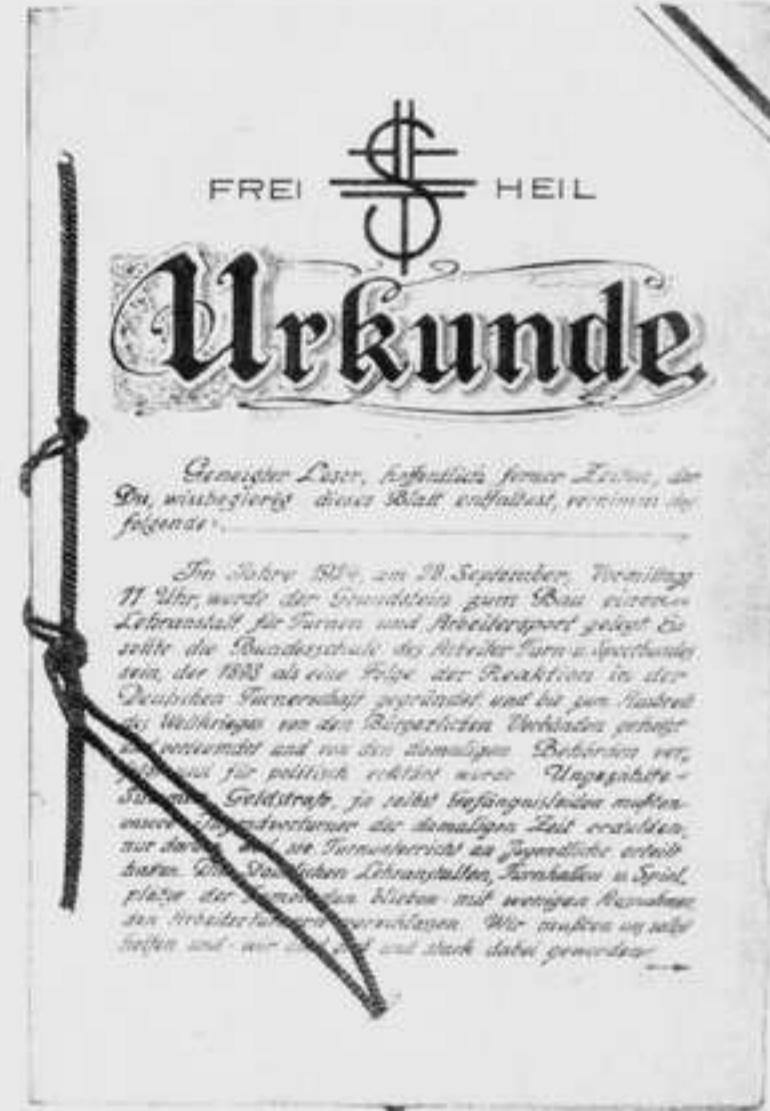 FREI HEIL
Urkunde
Geneigter Leser, hoffentlich ferner Zeiten, der
Du, wissbegierig dieses Blatt entfaltest, vernimm das
folgende:
Im Jahre 1924, am 28. September, Vormittag
11 Uhr, wurde der Grundstein zum Bau einer
Lehranstalt für Turnen und Arbeitersport gelegt Es
sollte die Bundesschule des Arbeiter Turn u. Sportbundes
sein, der 1893 als eine Folge der Reaktion in der
Deutschen Turnerschaft gegründet und bis zum Ausbruch
des Weltkrieges von den Bürgerlichen Verbänden gehetzt
verleumdet und von den damaligen Behörden ver
für politisch erklärt wurde Ungezählte
Geldstrafe, ja selbst Gefängnisleiden mußten
unsere Jugendvorturner der damaligen Zeit erdulden,
nur sie Turnunterricht an Jugendliche erteilt
haben. Die Staatlichen Lehranstalten, Turnhallen u. Spiel
plätze der Gemeinden blieben mit wenigen Ausnahmen
den Arbeiterturnern verschlossen. Wir mußten uns selbst
helfen und wir sind und stark dabei geworden